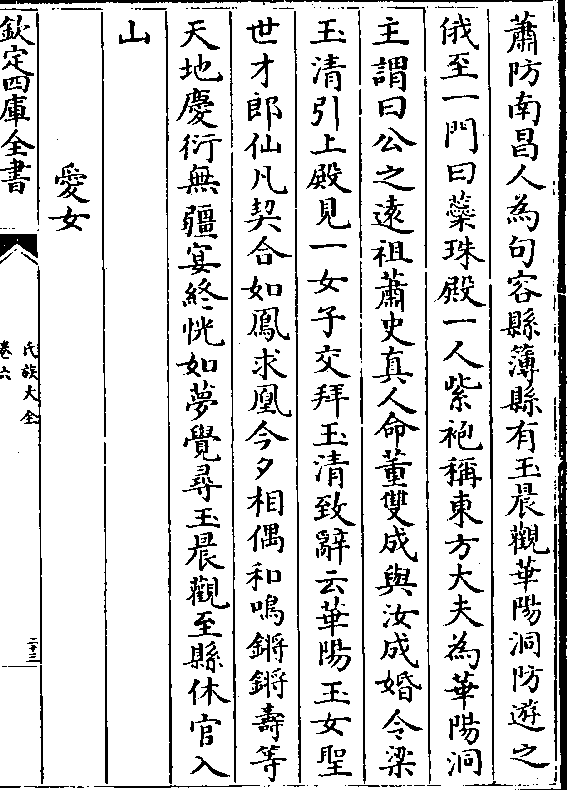 蕭防南昌人為句容縣簿縣有玉晨觀華陽洞防遊之
俄至一門曰蘂珠殿一人紫袍稱東方大夫為華陽洞
主謂曰公之遠祖蕭史真人命董雙成與汝成婚令梁
玉清引上殿見一女子交拜玉清致辭云華陽玉女聖
世才郎仙凡契合如鳳求凰今夕相偶和鳴鏘鏘壽等
天地慶衍無疆宴終恍如夢覺尋玉晨觀至縣休官入
山
愛女
欽定四庫全書
氏族大全
卷六
二十三